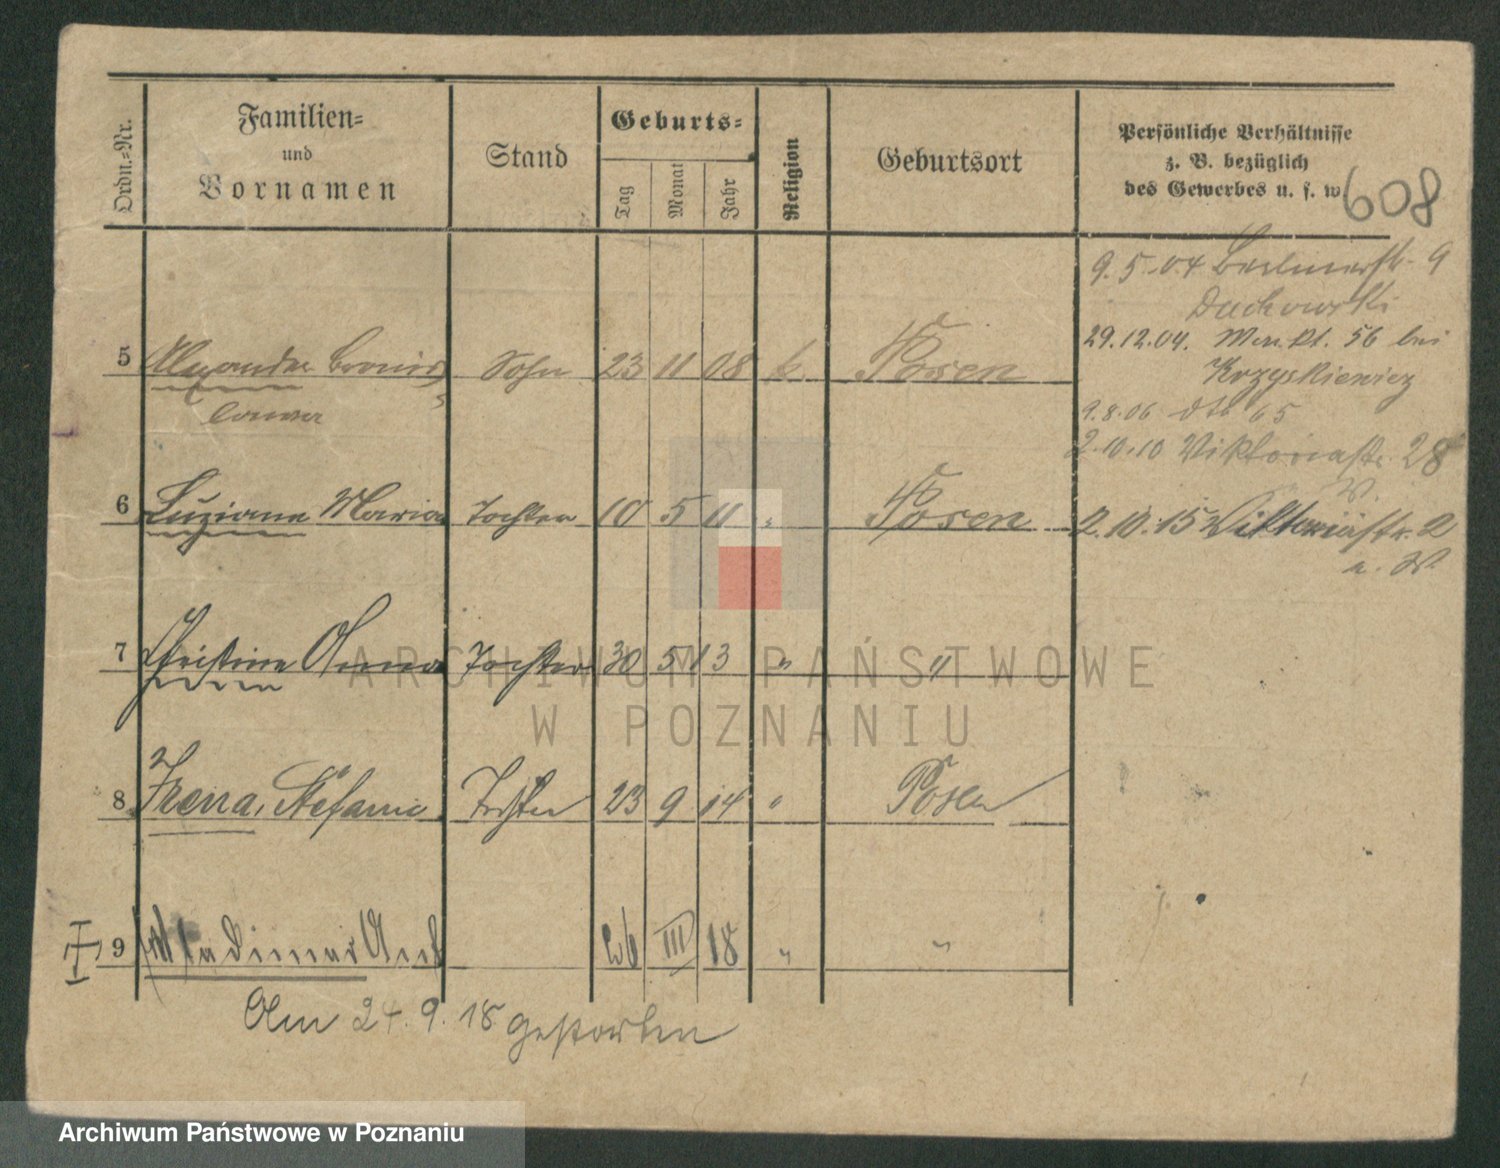 Ordn.-Nr.
Familien-
und
Vornamen
Stand
Geburts-
Tag
Monat
Jahr
Religion
Geburtsort
Persönliche Verhältnisse
z. B. bezüglich
des Gewerbes u. s. w
608
9.5.04 Berlinerstr. 9
Duchowski
29.12.04. 56 bei
Krzyskiewicz
9.8.06 dto 65
2.10.10 Viktoriastr. 28
W.
2.10.15 Viktoriastr. 2
a. W.
5 Alexander Sohn 23 11 08 k. Posen
6 Luziana Maria Tochter 10 5 11 " Posen
7 Christine Anna Tochter 30 5 13 " "
8 Irena, Stefanie Tochter 23 9 14 " Posen
9 Wladimar 26 III 18 " "
Am 24.9.18 gestorben
ARCHIWUM PAŃSTWOWE
W POZNANIU
Archiwum Państwowe w Poznaniu